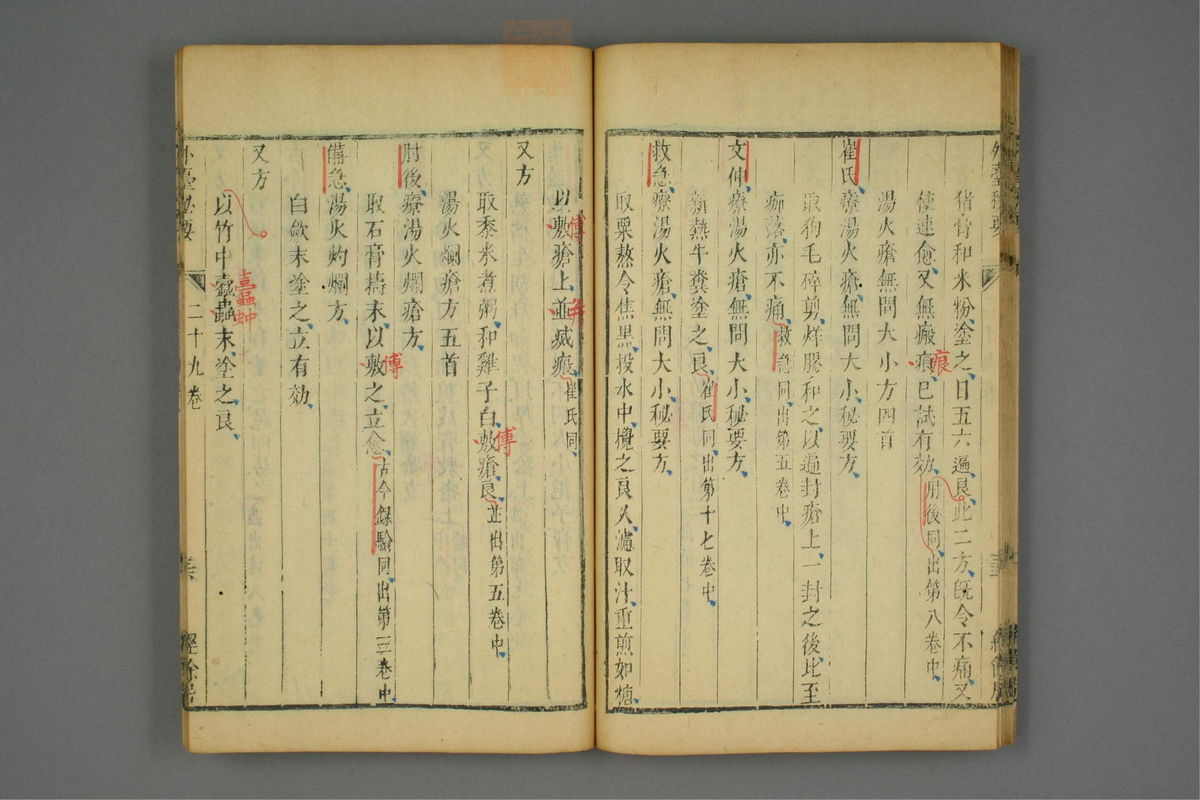 豬骨和米粉塗之日五六遍良此二方旣令不痛又
使速愈又無瘢痕已試有効肘後同出第八卷中
痕
湯火瘡無問大小方四首
崔氏療湯火瘡無問大小秘要方
取狗毛碎剪烊膠和之以遍封瘡上一封之後比至
痂落亦不痛救急同出第五卷中
文仲療湯火瘡無問大小秘要方
新熱牛糞塗之良崔氏同出第十七卷中
救急療湯火瘡無問大小秘要方
取粟熬令焦黑投水中攪之良久濾取汁重煎如糖
以敷瘡上並滅瘢崔氏同
傅
又方
取黍米煮粥和雞子白敷瘡良並出第五卷中
傅
湯火爛瘡方五首
肘後療湯火爛瘡方
取石膏擣末以敷之立愈古今錄驗同出第三卷中
傅
備急湯火灼爛方
白斂末塗之立有効
又方
以竹中蠹蟲末塗之良
外臺秘要
二十九卷
三六
經餘居